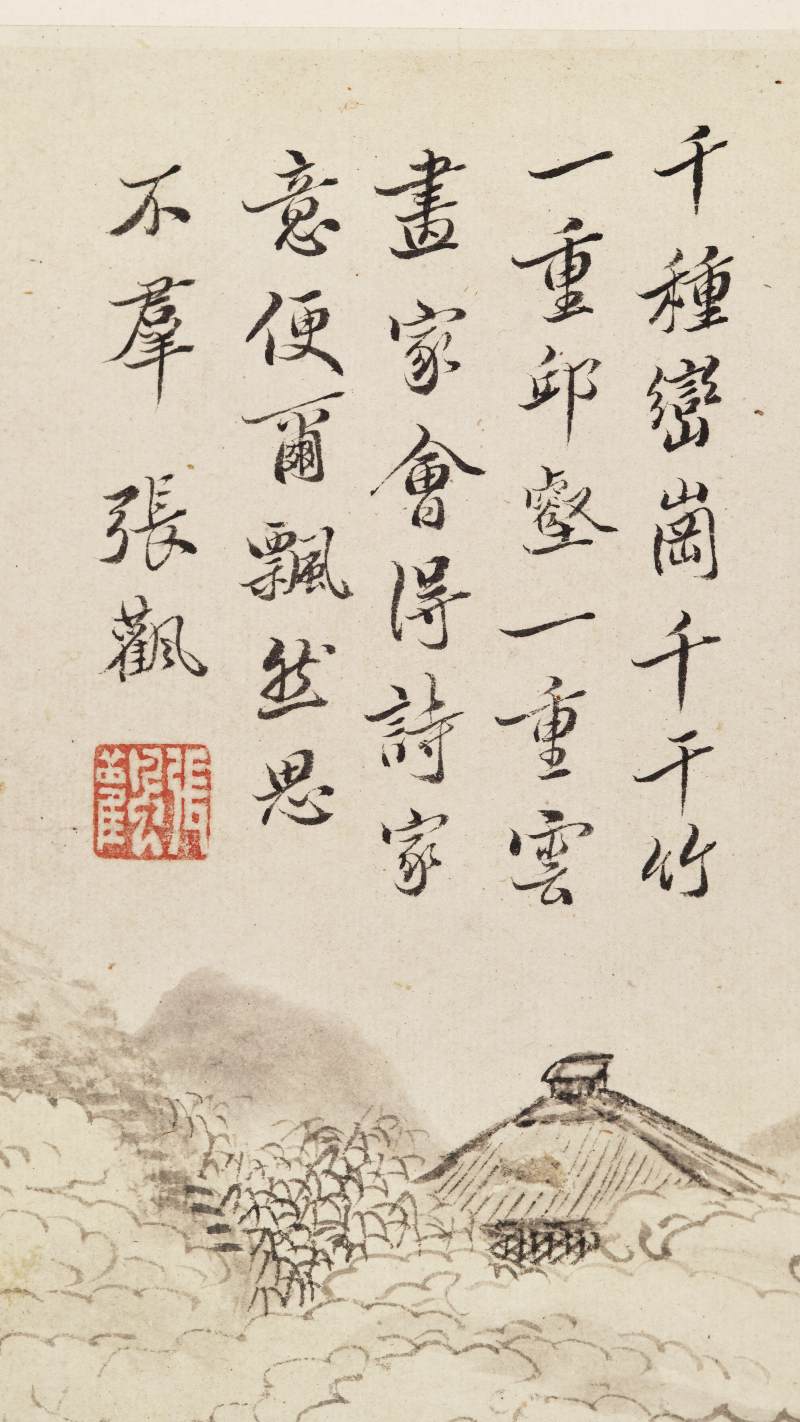 千種巒崗千干竹
一重邱壑一重雲
畫家會得詩家
意便爾飄然思
不羣 張觀